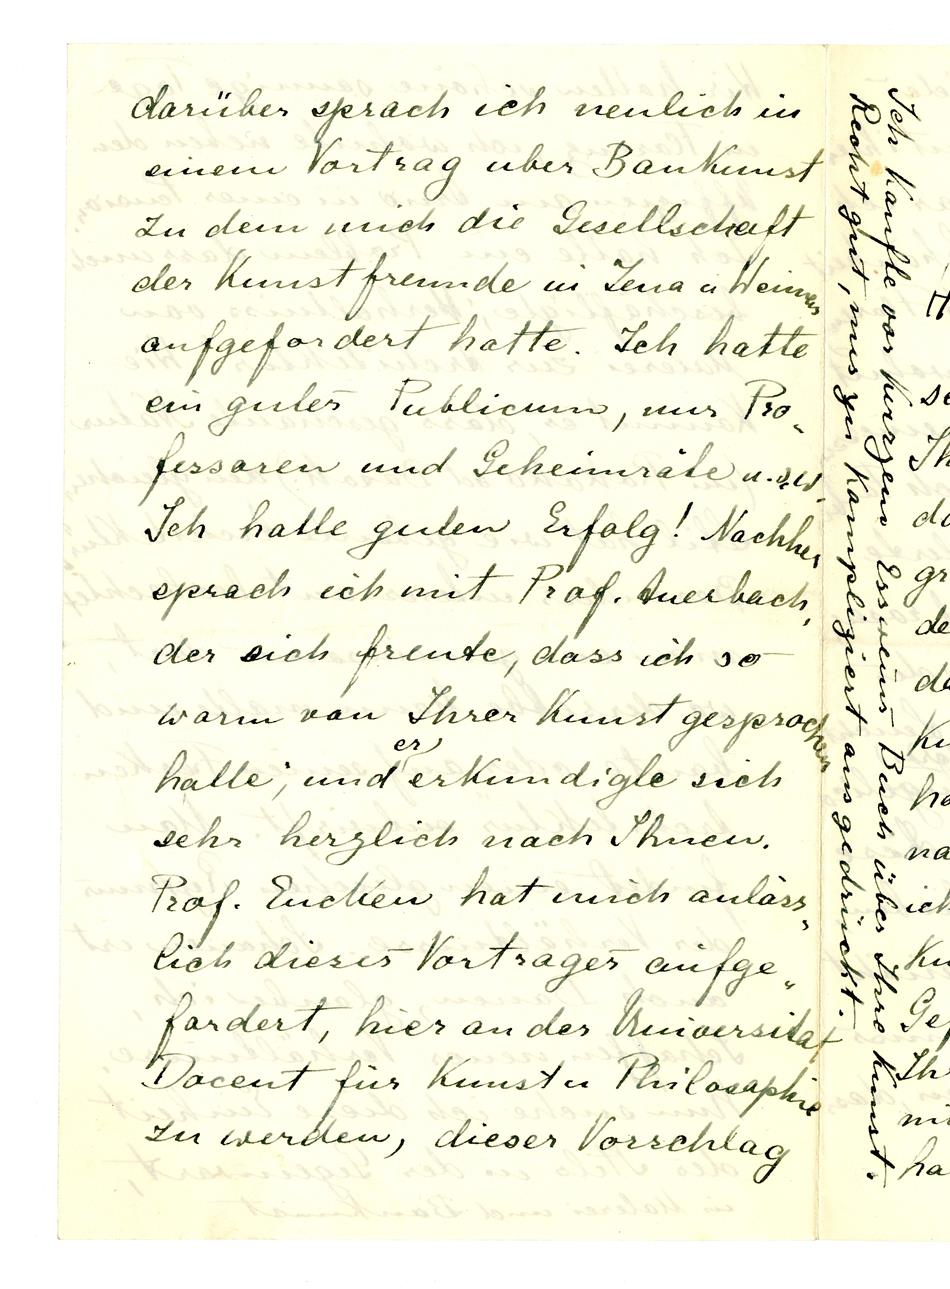 darüber sprach ich neulich in
einem Vortrag über BauKunst
zu dem mich die Gesellschaft
der Kunstfreunde in Jena u Weimar
aufgefordert hatte. Ich hatte
ein gutes Publicum, nur Pro„
fessoren und Geheimräte u.s.w.
Ich hatte guten Erfolg! Nachher
sprach ich mit Prof. Auerbach,
der sich freute, dass ich so
warm von Ihrer Kunst gesprochen
hatte, und er erkundigte sich
sehr herzlich nach Ihnen.
Prof. Eucken hat mich anläss„
lich dieses Vortrages aufge„
fordert, hier an der Universität
Docent für Kunst u Philosophie
zu werden, dieser Vorschlag
Ich kaufte vor kurzem Essweins Buch über Ihre Kunst.
Recht gut, nur zu kompliziert ausgedrückt.